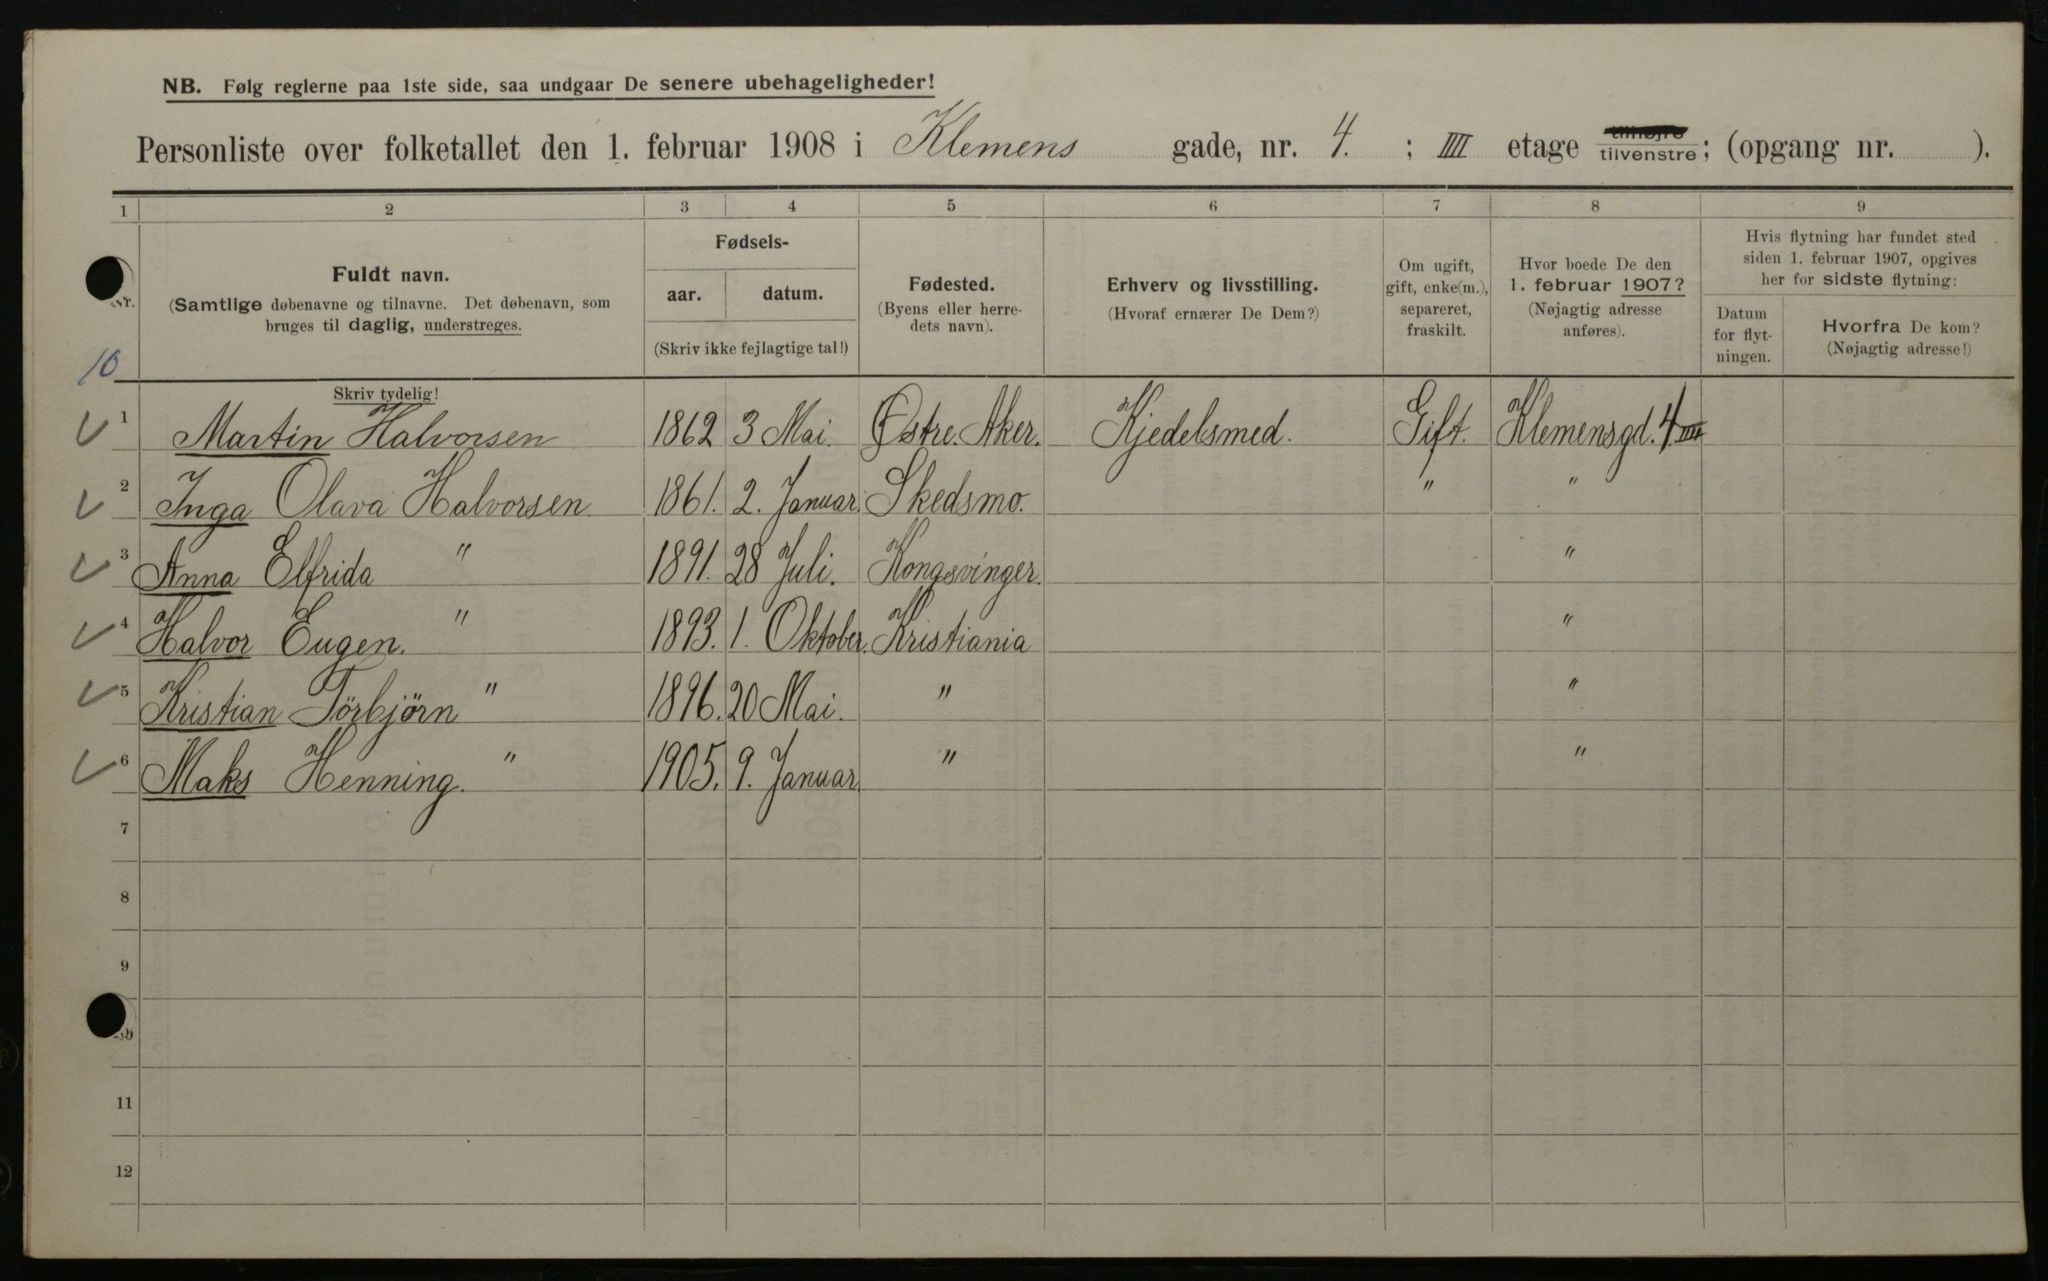 NB. Følg reglerne paa 1ste side, saa undgaar De senere ubehageligheder!
Personliste over folketallet den 1. februar 1908 i Klemens gade, nr. 4. ; IIII etage tilhøjre tilvenstre; (opgang nr. ).
1 2 3 4 5 6 7 8 9
Nr.
Fuldt navn.
(Samtlige døbenavne og tilnavne. Det døbenavn, som
bruges til daglig, understreges.
Skriv tydelig!
Fødsels-
aar. datum.
(Skriv ikke fejlagtige tal!)
Fødested.
(Byens eller herre-
dets navn).
Erhverv og livsstilling.
(Hvoraf ernærer De Dem?)
Om ugift,
gift, enke(m.),
separeret,
fraskilt.
Hvor boede De den
1. februar 1907?
(Nøjagtig adresse
anføres).
Hvis flytning har fundet sted
siden 1. februar 1907, opgives
her for sidste flytning:
Datum
for flyt-
ningen.
Hvorfra De kom?
(Nøjagtig adresse!)
10
1 Martin Halvorsen 1862 3 Mai. Østre. Aker. Kjedelsmed. Gift. Klemensgd. 4 IIII
2 Inga Olava Halvorsen 1861. 2. Januar. Skedsmo. " "
3 Anna Elfrida " 1891. 28 Juli. Kongsvinger. "
4 Halvor Eugen. " 1893. 1. Oktober. Kristiania "
5 Kristian Torbjørn " 1896. 20 Mai. " "
6 Maks Henning. " 1905. 9. Januar. " "
7
8
9
10
11
12